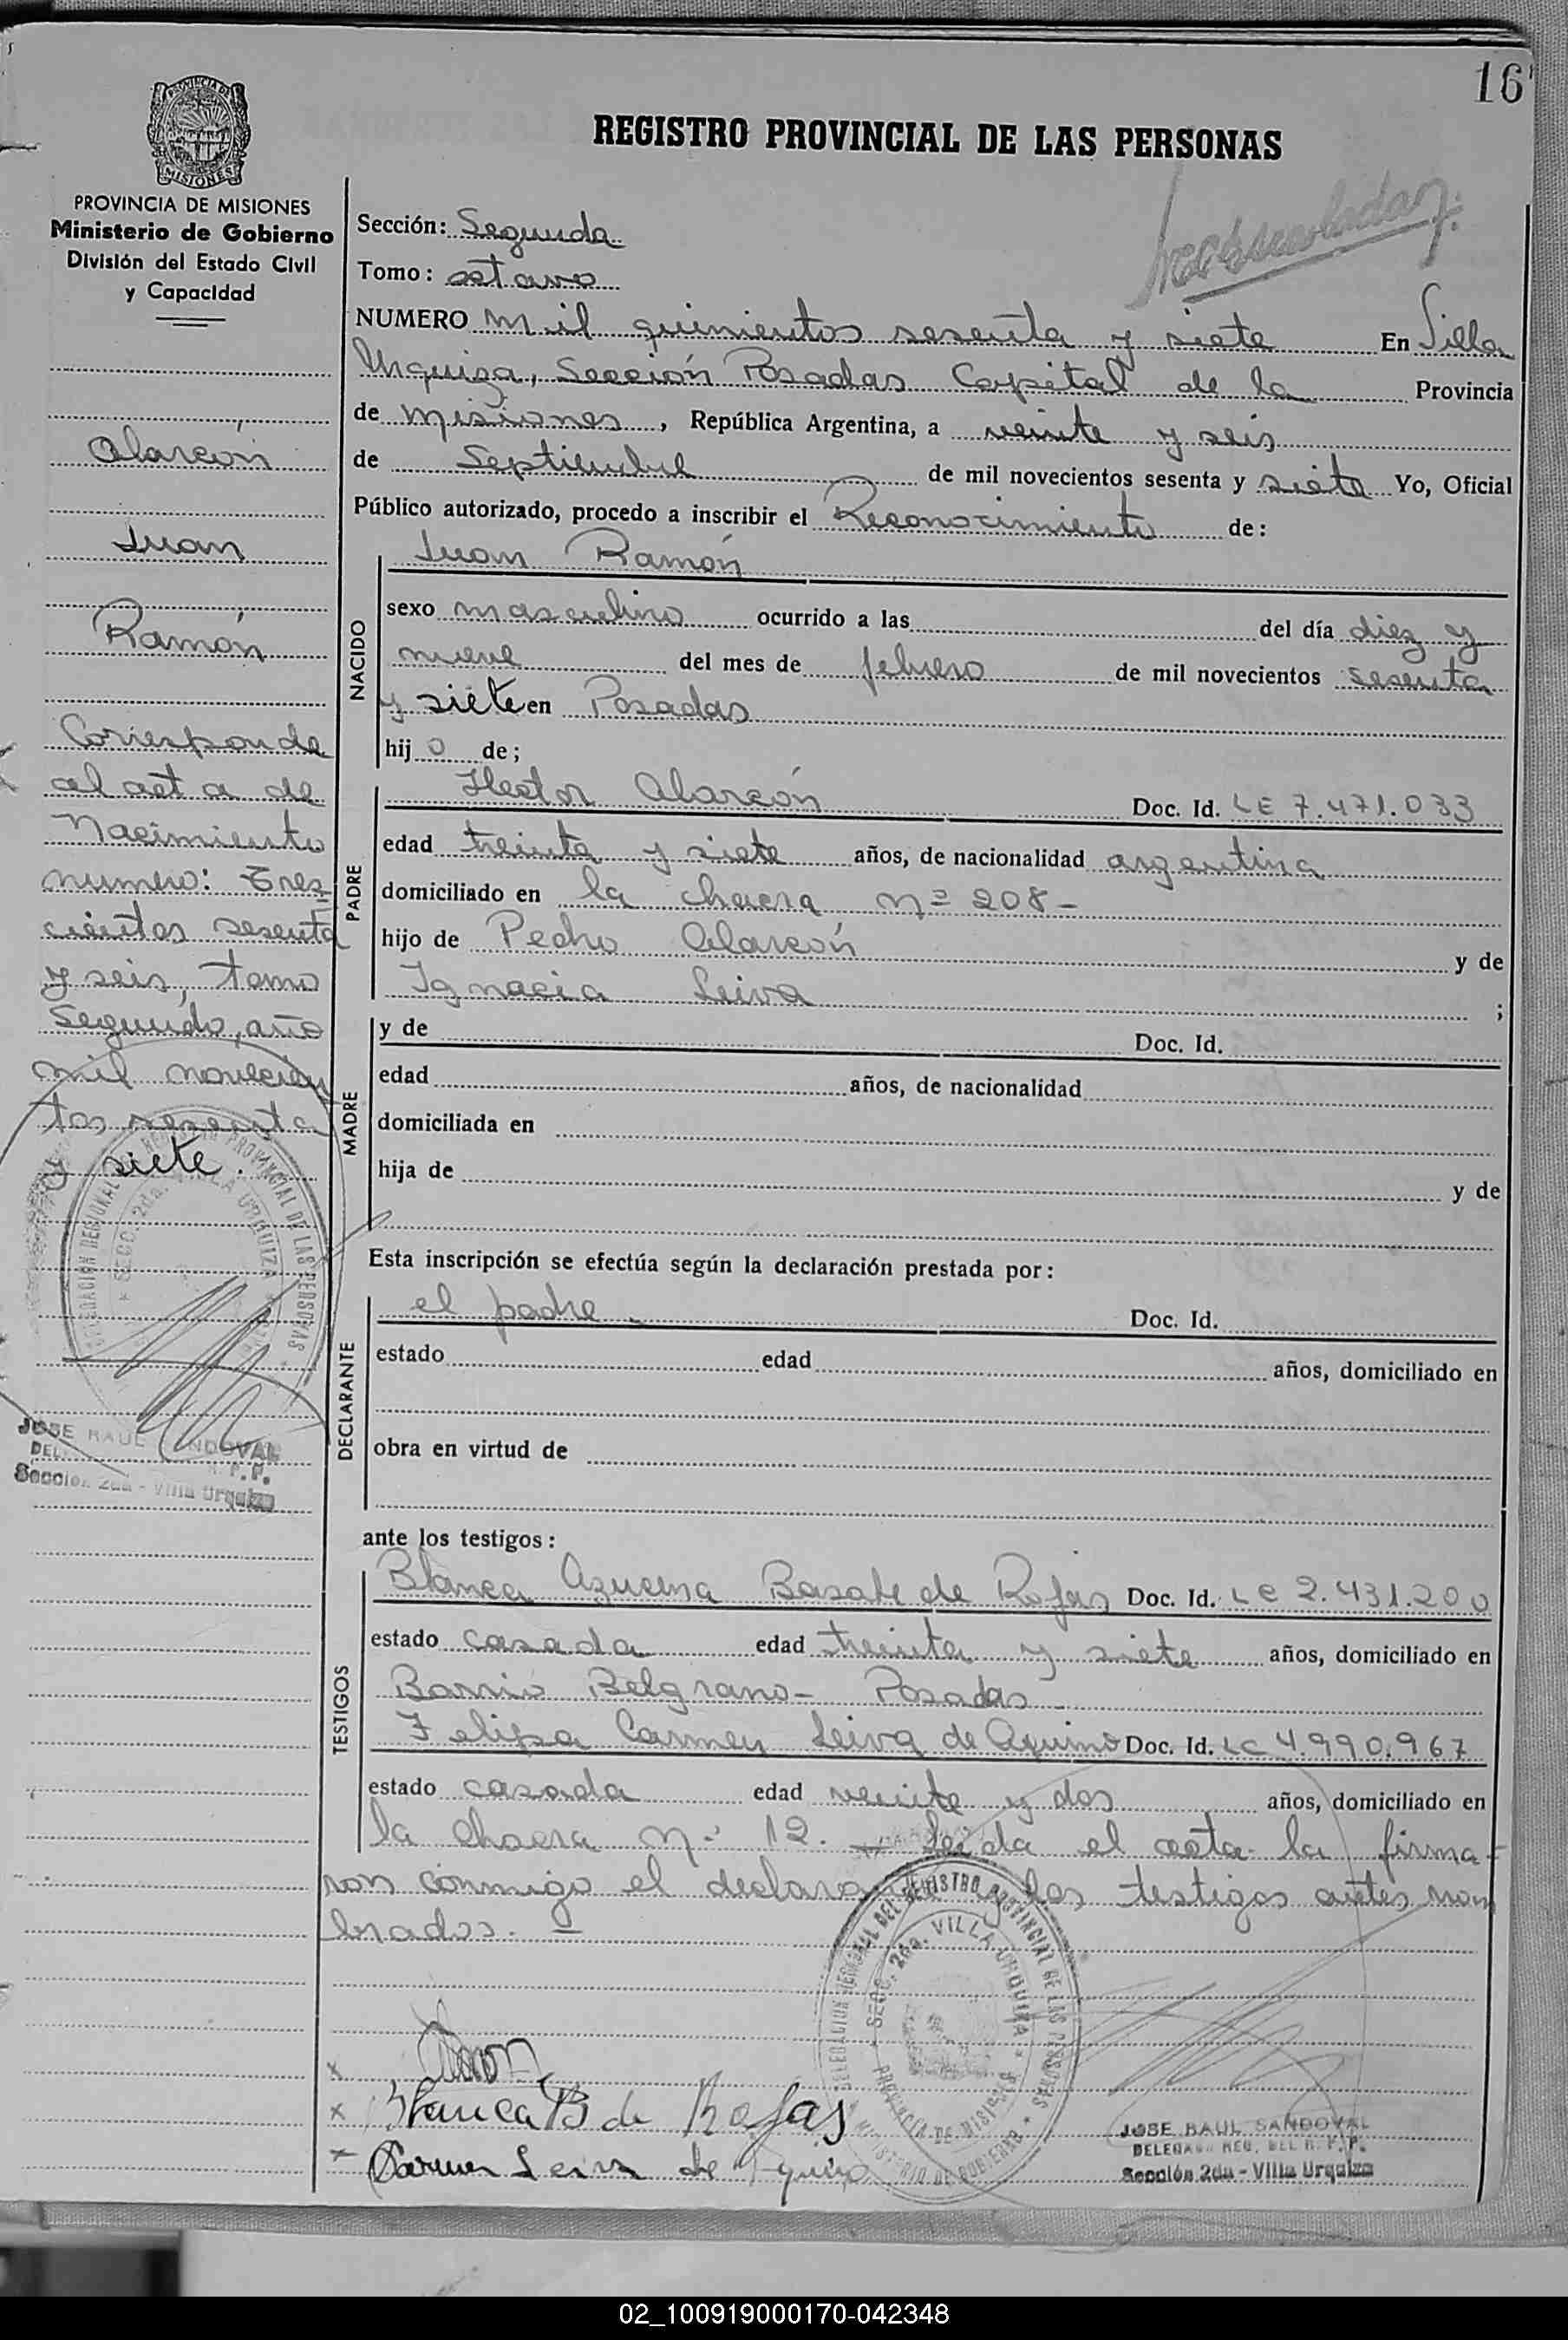 16
PROVINCIA DE
MISIONES
REGISTRO PROVINCIAL DE LAS PERSONAS
PROVINCIA DE MISIONES
Ministerio de Gobierno
División del Estado Civil
y Capacidad
Alarcón
Juan
Ramón
Corresponde
al acta de
Nacimiento
numero: Tres
cientos sesenta
y seis, tomo
Segundo, año
mil novecien
tos sesenta
y siete.
JOSE RAUL SANDOVAL
DEL. R. P. P.
Sección 2da - Villa Urquiza
Sección: Segunda
Tomo: octavo
NUMERO mil quinientos sesenta y siete En Villa
Urquiza, Sección Posadas Capital de la Provincia
de Misiones, República Argentina, a veinte y seis
de Septiembre de mil novecientos sesenta y siete Yo, Oficial
Público autorizado, procedo a inscribir el Reconocimiento de:
NACIDO
Juan Ramón
sexo masculino ocurrido a las del día diez y
nueve del mes de febrero de mil novecientos sesenta
y siete en Posadas
hij o de;
PADRE
Hector Alarcón Doc. Id. LE 7.471.033
edad treinta y siete años, de nacionalidad argentina
domiciliado en la chacra nº 208-
hijo de Pedro Alarcón y de
Ignacia Leiva ;
MADRE
y de Doc. Id.
edad años, de nacionalidad
domiciliada en
hija de y de
Esta inscripción se efectúa según la declaración prestada por:
DECLARANTE
el padre. Doc. Id.
estado edad años, domiciliado en
obra en virtud de
ante los testigos:
TESTIGOS
Blanca Azucena Basate de Rojas Doc. Id. LC 2.431.200
estado casada edad treinta y siete años, domiciliado en
Barrio Belgrano- Posadas
Felipa Carmen Leiva de Aquino Doc. Id. LC 4.990.967
estado casada edad veinte y dos años, domiciliado en
la chacra nº 12. _ Leida el acta la firma-
ron conmigo el declarante y los testigos antes nom
brados. _
DELEGACION REGIONAL DEL REGISTRO PROVINCIAL DE LAS PERSONAS
SECC. 2da. VILLA URQUIZA
PROVINCIA DE MISIONES
MINISTERIO DE GOBIERNO
x
x Blanca B de Rojas
x Carmen Leiva de Aquino
JOSE RAUL SANDOVAL
DELEGADO REG. DEL R. P. P.
Sección 2da - Villa Urquiza
02_100919000170-042348